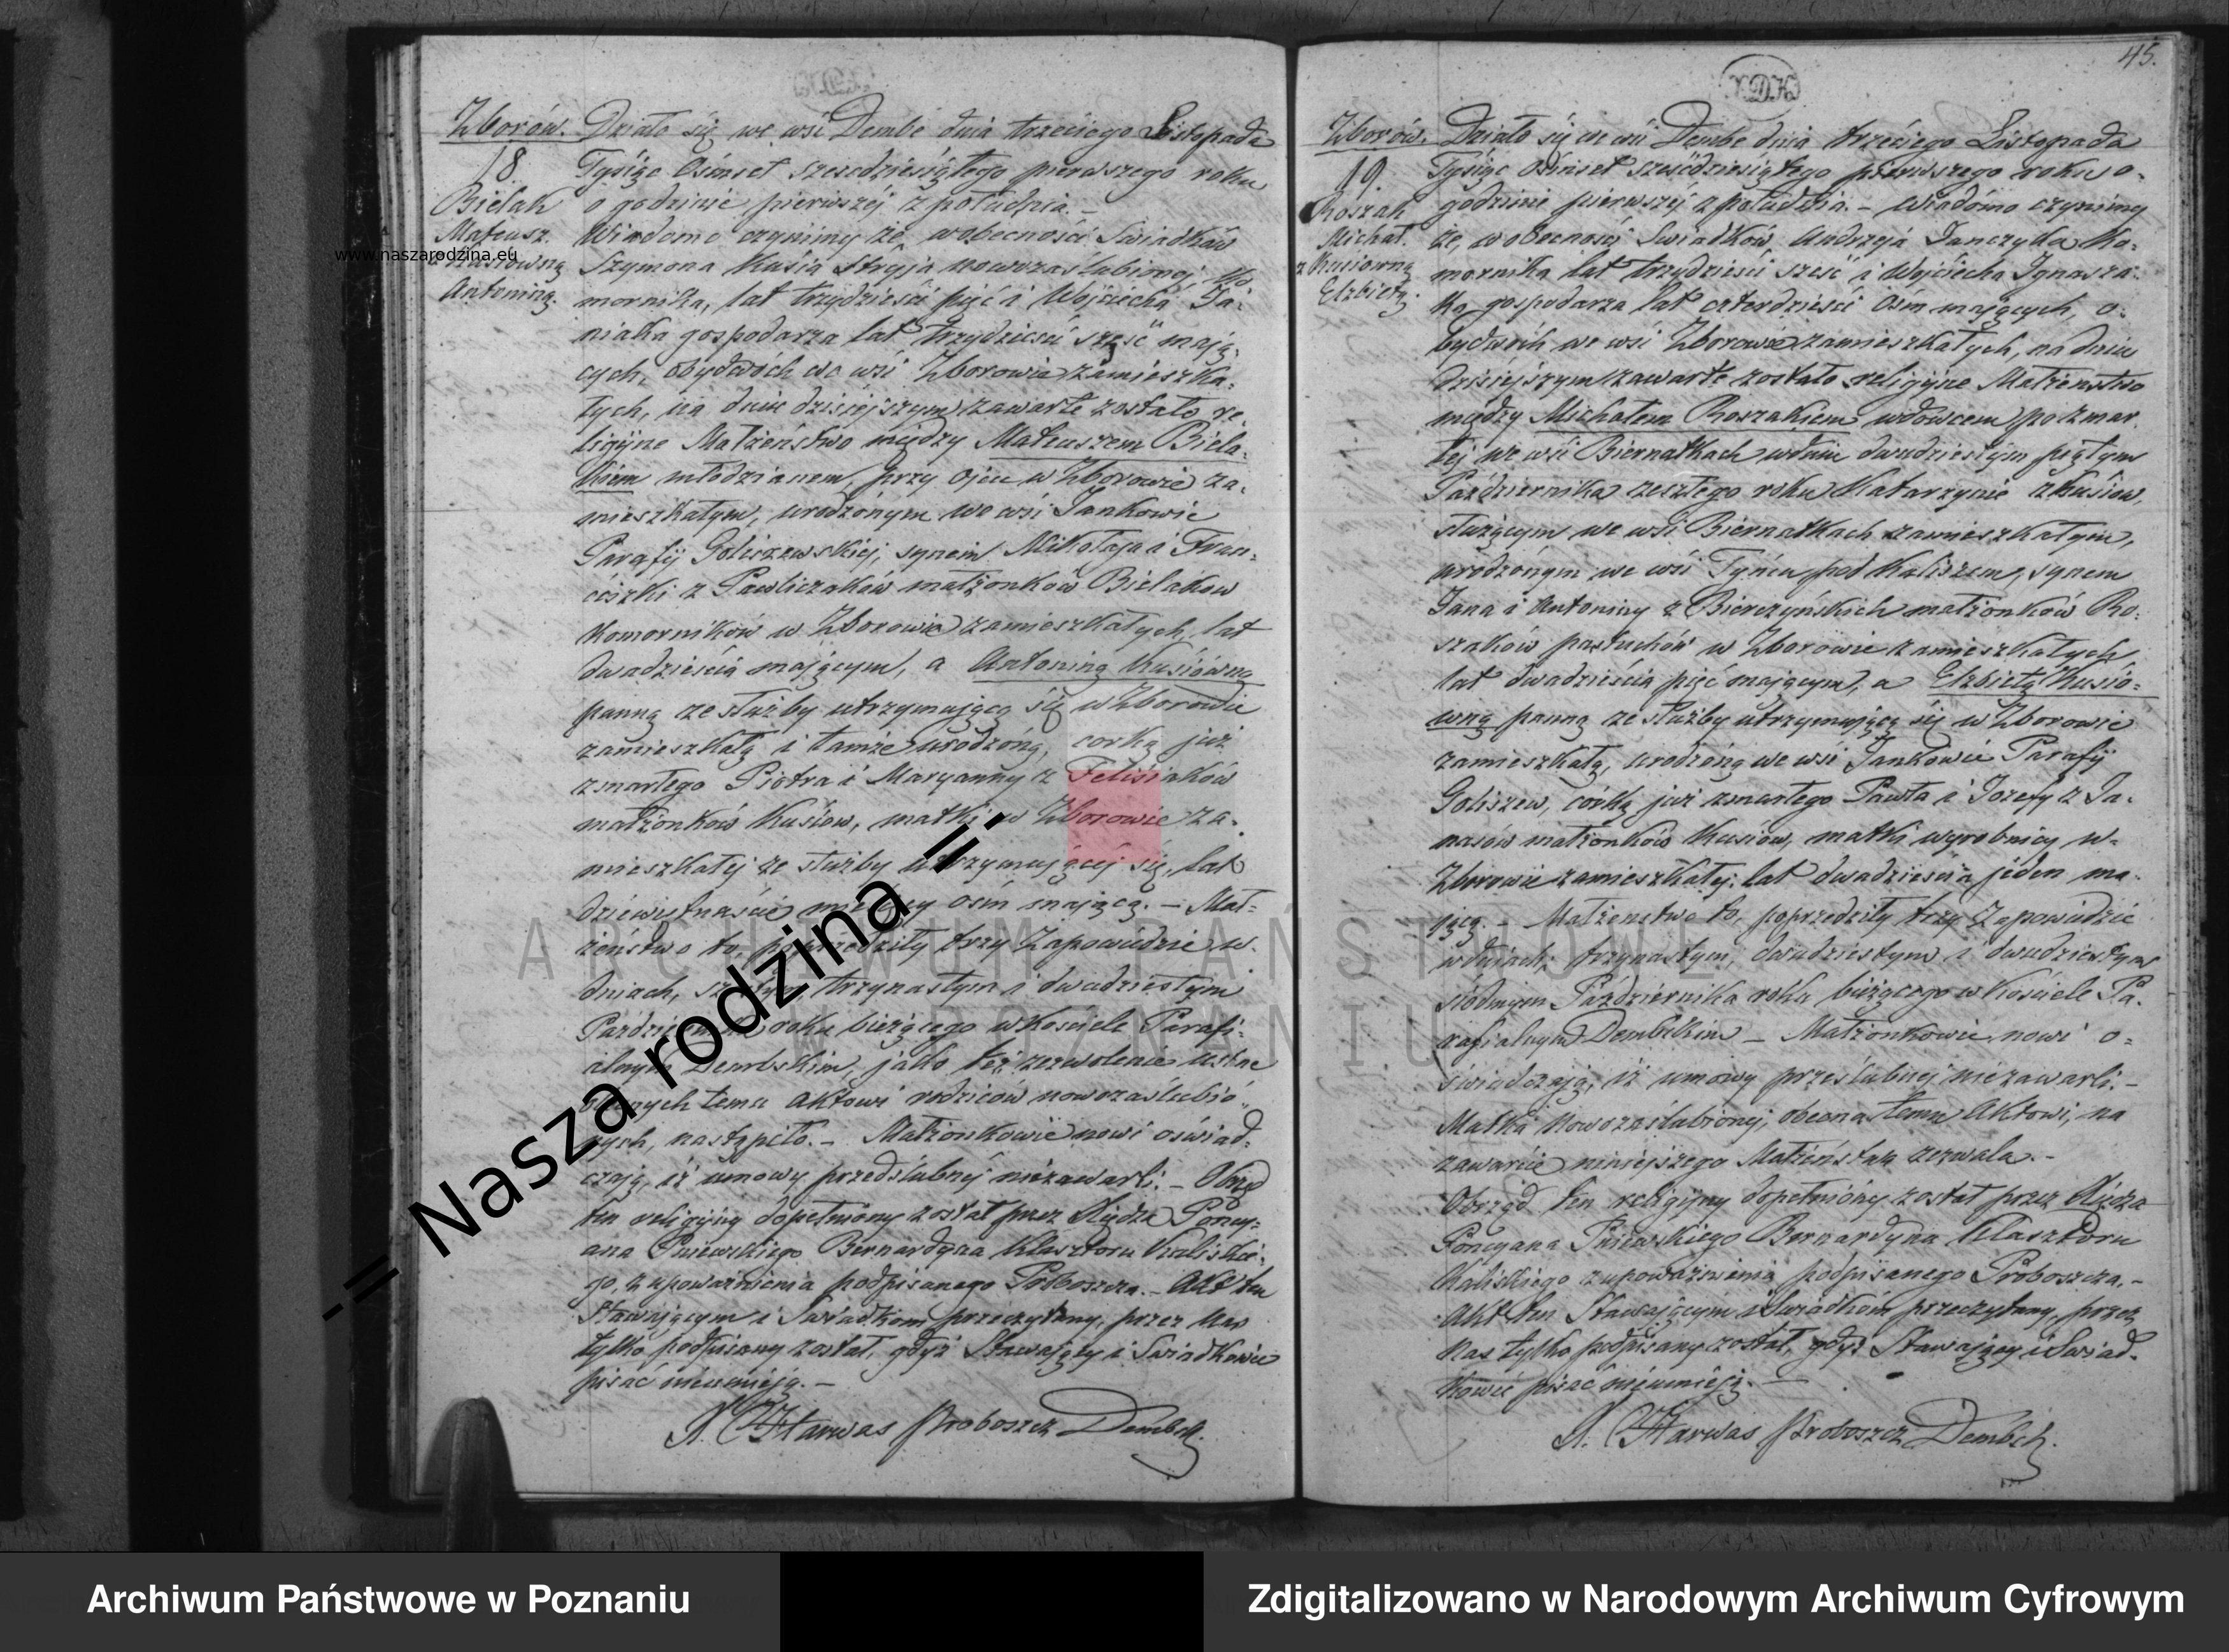 45.
Zborów.
18
Bielak
Mateusz.
z Kusiówną
Antoniną.
Działo się we wsi Dembe dnia trzeciego Listopada
Tysiąc Ośmset sześcdziesiątego pierwszego roku
o godzinie pierwszéj z południa. –
Wiadomo czynimy że, w obecności Swiadków
Szymona Kusia Stryja nowozaślubionej, Ko-
mornika, lat trzydzieści pięć i Wojciecha Ja-
niaka gospodarza lat trzydzieści sześć mają-
cych, obydwóch we wsi Zborowie zamieszka-
łych, na dniu dzisiejszym zawarte zostało re-
ligijne Małżeństwo między Mateuszem Biela-
kiem młodzianem, przy ojcu w Zborowie za-
mieszkałym, urodzónym we wsi Jankowie
Parafij Goliszewskiéj, synem Mikołaja i Fran-
ciszki z Pawliczaków małżonków Bielaków
Komorników w Zborowie zamieszkałych, lat
dwadzieścia mającym, a Antoniną Kusiówną
panną ze służby utrzymującą się w Zborowie
zamieszkałą i tamże urodzóną, corką już
zmarłego Piotra i Maryanny z Felisiaków
małżonków Kusiów, matki w Zborowie za-
mieszkałej ze służby utrzymującéj się, lat
dziewiętnaście miesięcy ośm mającą. – Mał-
żeństwo to, poprzedziły trzy Zapowiedzie w
dniach, szóstym, trzynastym i dwudziestym
Października roku bieżącego w Kościele Parafi-
alnym Dembskim, jako też zezwolenie ustne
obecnych temu Aktowi rodziców nowozaślubió-
nych, nastąpiło. – Małżonkowie nowi oświad-
czają, iż umowy przedślubnéj niezawarli. – Obrzęd
ten religijny dopełniony został przez Xiędza Poncy-
ana Pniewskiego Bernardyna Klasztoru Kaliskie-
go, z upoważnienia podpisanego Proboszcza. – Akt ten
Stawającym i Swiadkom przeczytany, przez Nas
tylko podpisany został, gdyż Stawający i Swiadkowie
pisać nieumieją. –
X. Harwas Proboszcz Dembsk.
Zborów.
19.
Roszak
Michał.
z Kusiówną
Elżbietą.
Działo się we wsi Dembe dnia trzeciego Listopada
Tysiąc Ośmset sześćdziesiątego pierwszego roku o-
godzinie pierwszéj z południa. – Wiadomo czynimy
że, w obecności Swiadków, Andrzeja Janczyka Ko-
mornika lat trzydzieści sześć i Wojciecha Ignasza-
ka gospodarza lat czterdzieści ośm mających, o-
bydwóch we wsi Zborowie zamieszkałych, na dniu
dzisiejszym zawarte zostało religijne Małżeństwo
między Michałem Roszakiem wdowcem po zmar-
łej we wsi Biernatkach w dniu dwudziestym piątym
Października zeszłego roku Katarzynie z Kusiów,
służącym we wsi Biernatkach zamieszkałym,
urodzónym we wsi Tyńcu pod Kaliszem, synem
Jana i Antoniny z Bierczyńskich małżonków Ro-
szaków pastuchów w Zborowie zamieszkałych
lat dwadzieścia pięć mającym, a Elżbietą Kusió-
wną panną ze służby utrzymującą się w Zborowie
zamieszkałą, urodzóną we wsi Jankowie Parafij
Goliszew, córką już zmarłego Pawła i Jozefy z Ja-
nasów małżonków Kusiów, matki wyrobnicy w-
Zborowie zamieszkałej, lat dwadzieścia jeden ma-
jącą. – Małżeństwo to, poprzedziły trzy Zapowiedzie
w dniach, trzynastym, dwudziestym i dwudziestym
siódmym Października roku bieżącego w Kościele Pa-
rafialnym Dembskim – Małżonkowie nowi o-
świadczają, iż umowy prześlubnéj niezawarli. –
Matka Nowozaślubionéj, obecna temu Aktowi, na
zawarcie niniejszego Małżeństwa zezwala. –
Obrząd ten religijny dopełnióny został przez Xiędza
Poncyana Pniewskiego Bernardyna Klasztoru
Kaliskiego z upoważnienia podpisanego Proboszcza. –
Akt ten Stawającym i Swiadkóm przeczytany, przez
Nas tylko podpisany został, gdyż Stawający i Swiad-
kowie pisać nieumieją. –
X. Harwas Proboszcz Dembsk.
www.naszarodzina.eu
-= Nasza rodzina =-
ARCHIWUM PAŃSTWOWE
W POZNANIU
Archiwum Państwowe w Poznaniu
Zdigitalizowano w Narodowym Archiwum Cyfrowym